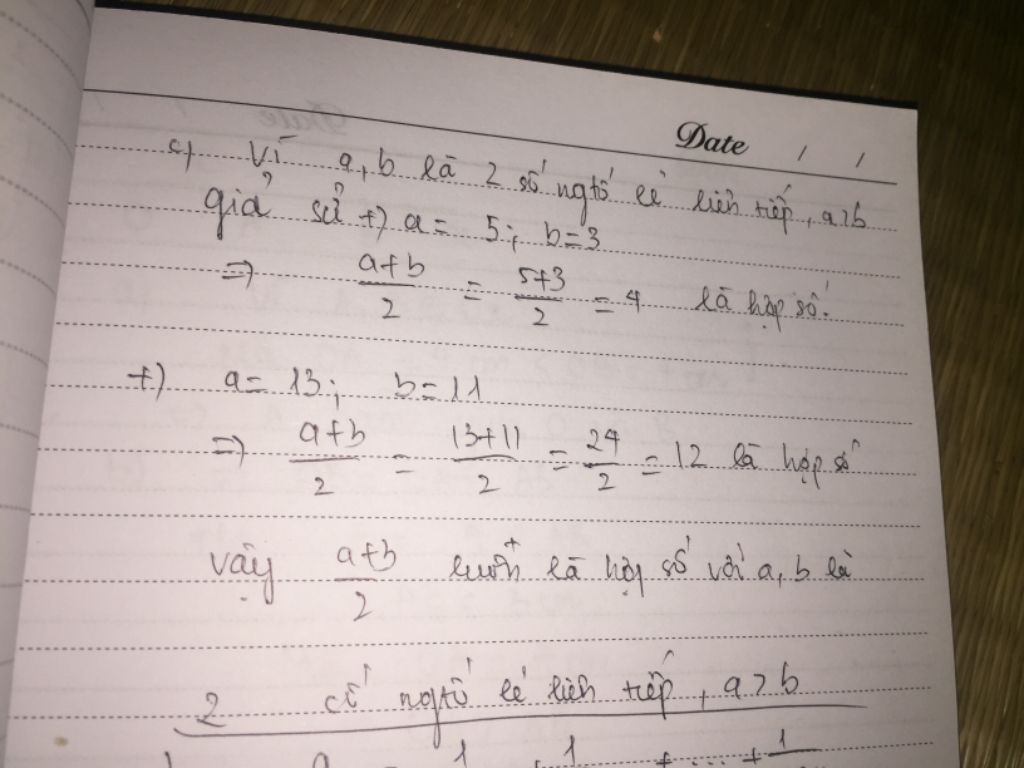 Date / /
c) Vì a, b là 2 số ngtố lẻ liên tiếp, a>b
giả sử +) a = 5; b=3
=> a+b/2 = 5+3/2 = 4 là hợp số.
+) a= 13; b=11
=> a+b/2 = 13+11/2 = 24/2 = 12 là hợp số
vậy a+b/2 luôn là hợp số với a, b là
2 số ngtố lẻ liên tiếp, a>b